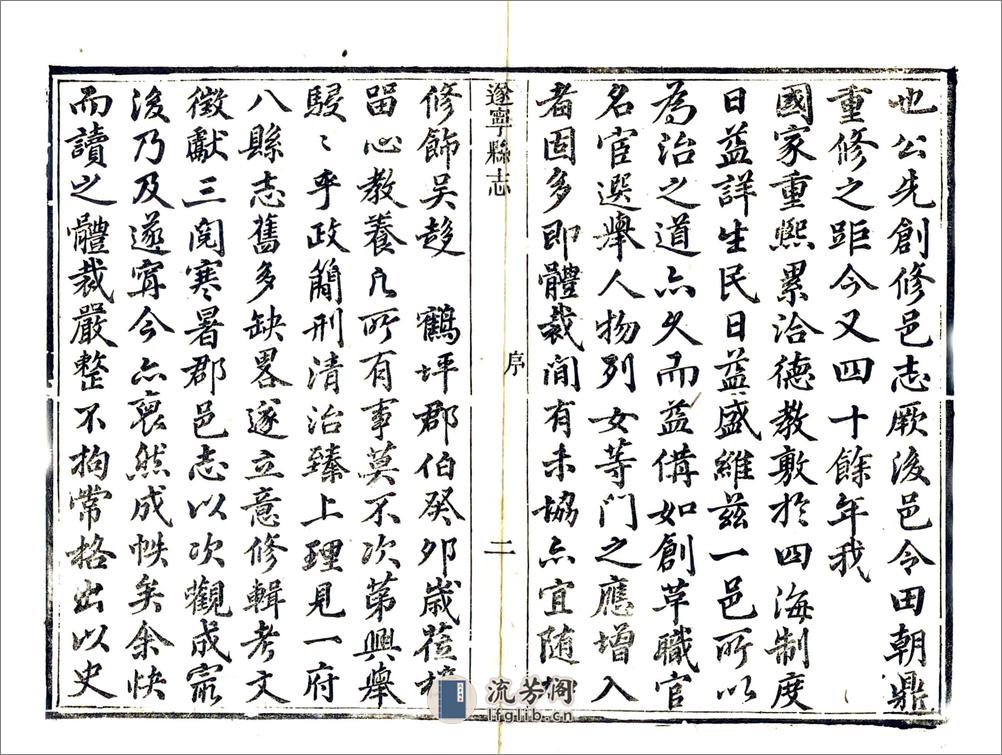 也公先創修邑志厥後邑令田朝鼎
重修之距今又四十餘年我
國家重熙累洽德教敷於四海制度
日益詳生民日益盛維茲一邑所以
為治之道亦久而益備如創革職官
名宦選舉人物列女等門之應增入
者固多即體裁間有未協亦宜隨
遂寧縣志
序
二
修飾吳趍 鶴坪郡伯癸卯歲蒞
留心教養凡所有事莫不次第興舉
駸〻乎政簡刑清治臻上理見一府
八縣志舊多缺畧遂立意修輯考文
徵獻三閱寒暑郡邑志以次觀成最
後乃及遂寧今亦裒然成帙矣余快
而讀之體裁嚴整不拘常格出以史
流芳阁
lfglib.cn